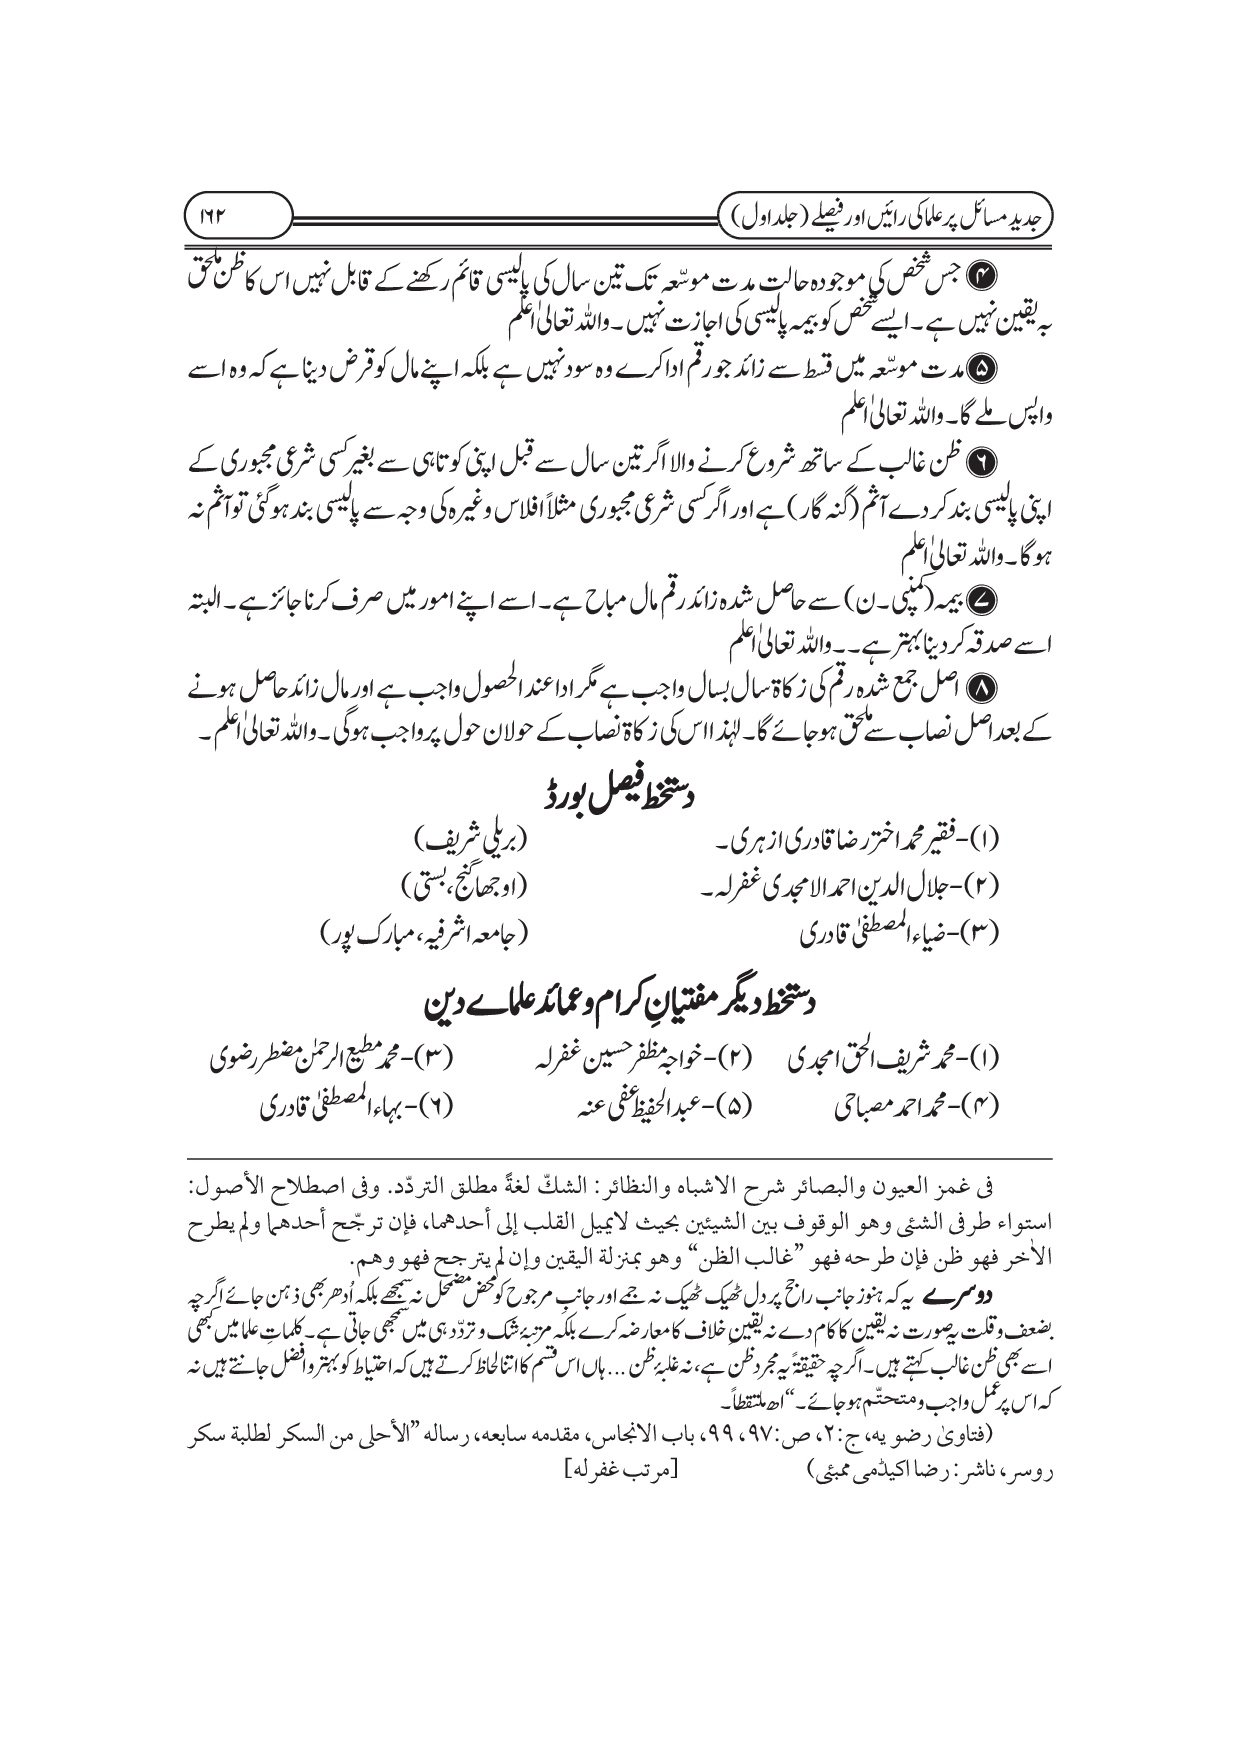 جدید مسائل پر علما کی رائیں اور فیصلے (جلد اول) ۱۶۲
❹ جس شخص کی موجودہ حالت مدت موسّعہ تک تین سال کی پالیسی قائم رکھنے کے قابل نہیں اس کا ظن ملحق
بہ یقین نہیں ہے۔ ایسے شخص کو بیمہ پالیسی کی اجازت نہیں۔ واللہ تعالیٰ اعلم
❺ مدت موسّعہ میں قسط سے زائد جو رقم ادا کرے وہ سود نہیں ہے بلکہ اپنے مال کو قرض دینا ہے کہ وہ اسے
واپس ملے گا۔ واللہ تعالیٰ اعلم
❻ ظن غالب کے ساتھ شروع کرنے والا اگر تین سال سے قبل اپنی کوتاہی سے بغیر کسی شرعی مجبوری کے
اپنی پالیسی بند کر دے آثم (گنہ گار) ہے اور اگر کسی شرعی مجبوری مثلاً افلاس وغیرہ کی وجہ سے پالیسی بند ہو گئی تو آثم نہ
ہوگا۔ واللہ تعالیٰ اعلم
❼ بیمہ (کمپنی۔ن) سے حاصل شدہ زائد رقم مال مباح ہے۔ اسے اپنے امور میں صرف کرنا جائز ہے۔ البتہ
اسے صدقہ کر دینا بہتر ہے۔۔ واللہ تعالیٰ اعلم
❽ اصل جمع شدہ رقم کی زکاۃ سال بسال واجب ہے مگر ادا عند الحصول واجب ہے اور مال زائد حاصل ہونے
کے بعد اصل نصاب سے ملحق ہو جائے گا۔ لہٰذا اس کی زکاۃ نصاب کے حولان حول پر واجب ہوگی۔ واللہ تعالیٰ اعلم۔
دستخط فیصل بورڈ
(۱)-فقیر محمد اختر رضا قادری ازہری۔ (بریلی شریف)
(۲)-جلال الدین احمد الامجدی غفرلہ۔ (اوجھا گنج، بستی)
(۳)-ضیاء المصطفیٰ قادری (جامعہ اشرفیہ، مبارک پور)
دستخط دیگر مفتیانِ کرام و عمائد علماے دین
(۱)-محمد شریف الحق امجدی (۲)-خواجہ مظفر حسین غفرلہ (۳)-محمد مطیع الرحمٰن مضطر رضوی
(۴)-محمد احمد مصباحی (۵)-عبد الحفیظ عفی عنہ (۶)-بہاء المصطفیٰ قادری
فی غمز العیون والبصائر شرح الاشباہ والنظائر: الشكّ لغةً مطلق التردّد. وفی اصطلاح الأصول:
استواء طرفی الشئی وهو الوقوف بین الشیئین بحیث لایمیل القلب إلى أحدهما، فإن ترجّح أحدهما ولم یطرح
الاٰخر فهو ظن فإن طرحه فهو ”غالب الظن“ وهو بمنزلة الیقین وإن لم یترجح فهو وهم.
دوسرے یہ کہ ہنوز جانب راجح پر دل ٹھیک ٹھیک نہ جمے اور جانبِ مرجوح کو محض مضمحل نہ سمجھے بلکہ اُدھر بھی ذہن جائے اگرچہ
بضعف و قلت یہ صورت نہ یقین کا کام دے نہ یقینِ خلاف کا معارضہ کرے بلکہ مرتبۂ شک و تردّد ہی میں سمجھی جاتی ہے۔ کلماتِ علما میں کبھی
اسے بھی ظن غالب کہتے ہیں۔ اگرچہ حقیقۃً یہ مجرد ظن ہے، نہ غلبۂ ظن ... ہاں اس قسم کا اتنا لحاظ کرتے ہیں کہ احتیاط کو بہتر و افضل جانتے ہیں نہ
کہ اس پر عمل واجب و متحتّم ہو جائے۔“ اھ ملتقطاً۔
(فتاویٰ رضویه، ج:۲، ص:۹۷، ۹۹، باب الانجاس، مقدمه سابعه، رساله ”الأحلى من السكر لطلبة سكر
روسر، ناشر: رضا اکیڈمی ممبئی) [مرتب غفرله]